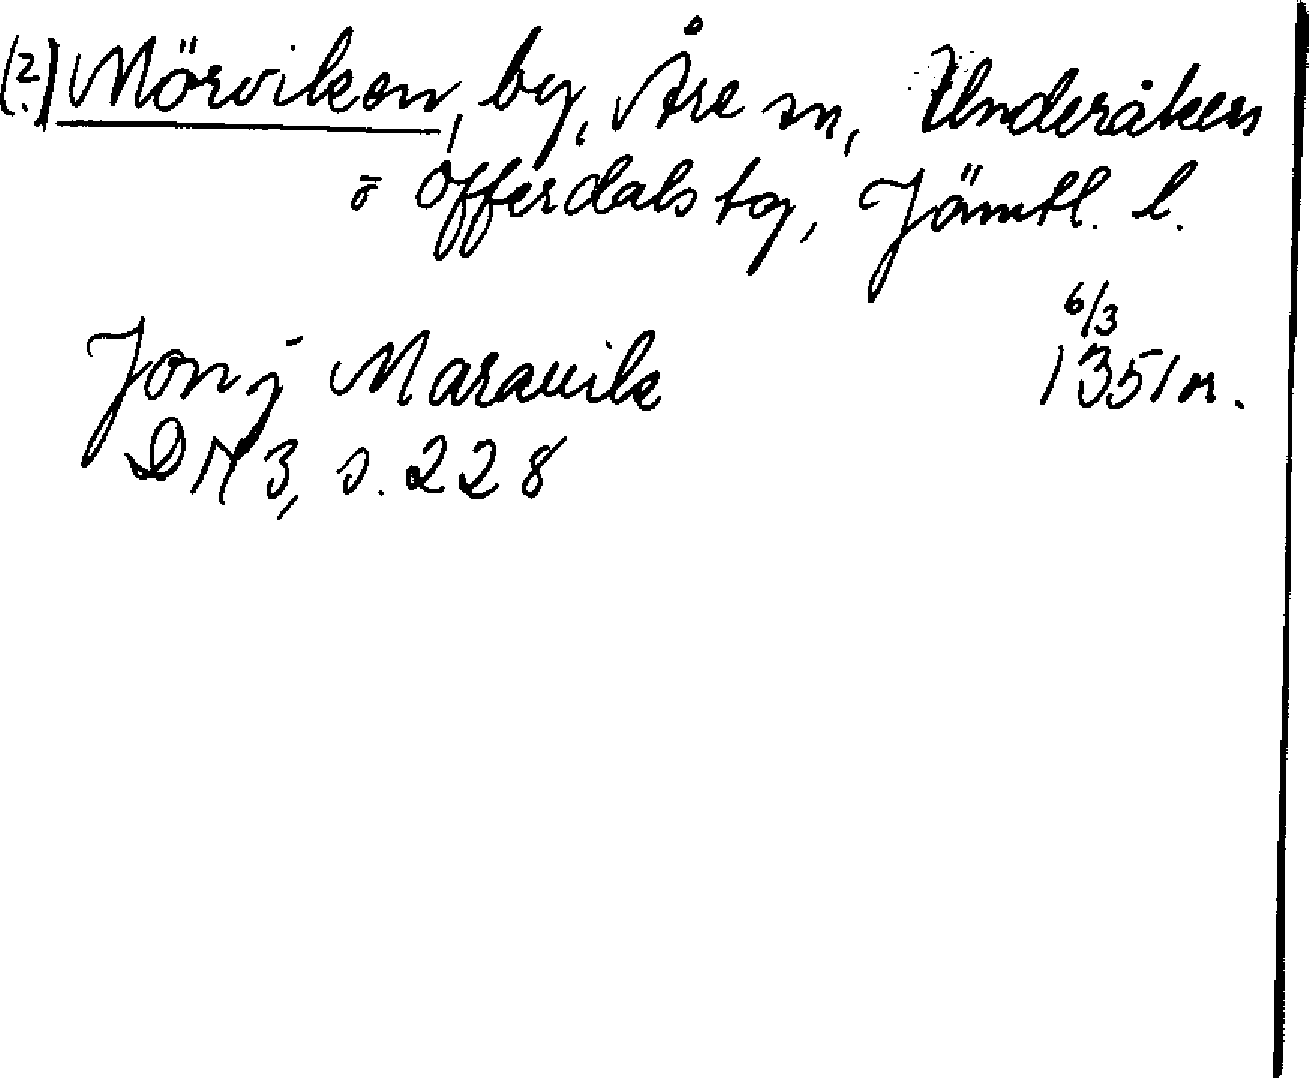 (?) Mörviken, by, Åre sn, Undersåkers
o Offerdals tg, Jämtl. l.
6/3
Jon j Marauik 1351 or.
DN 3, s. 228